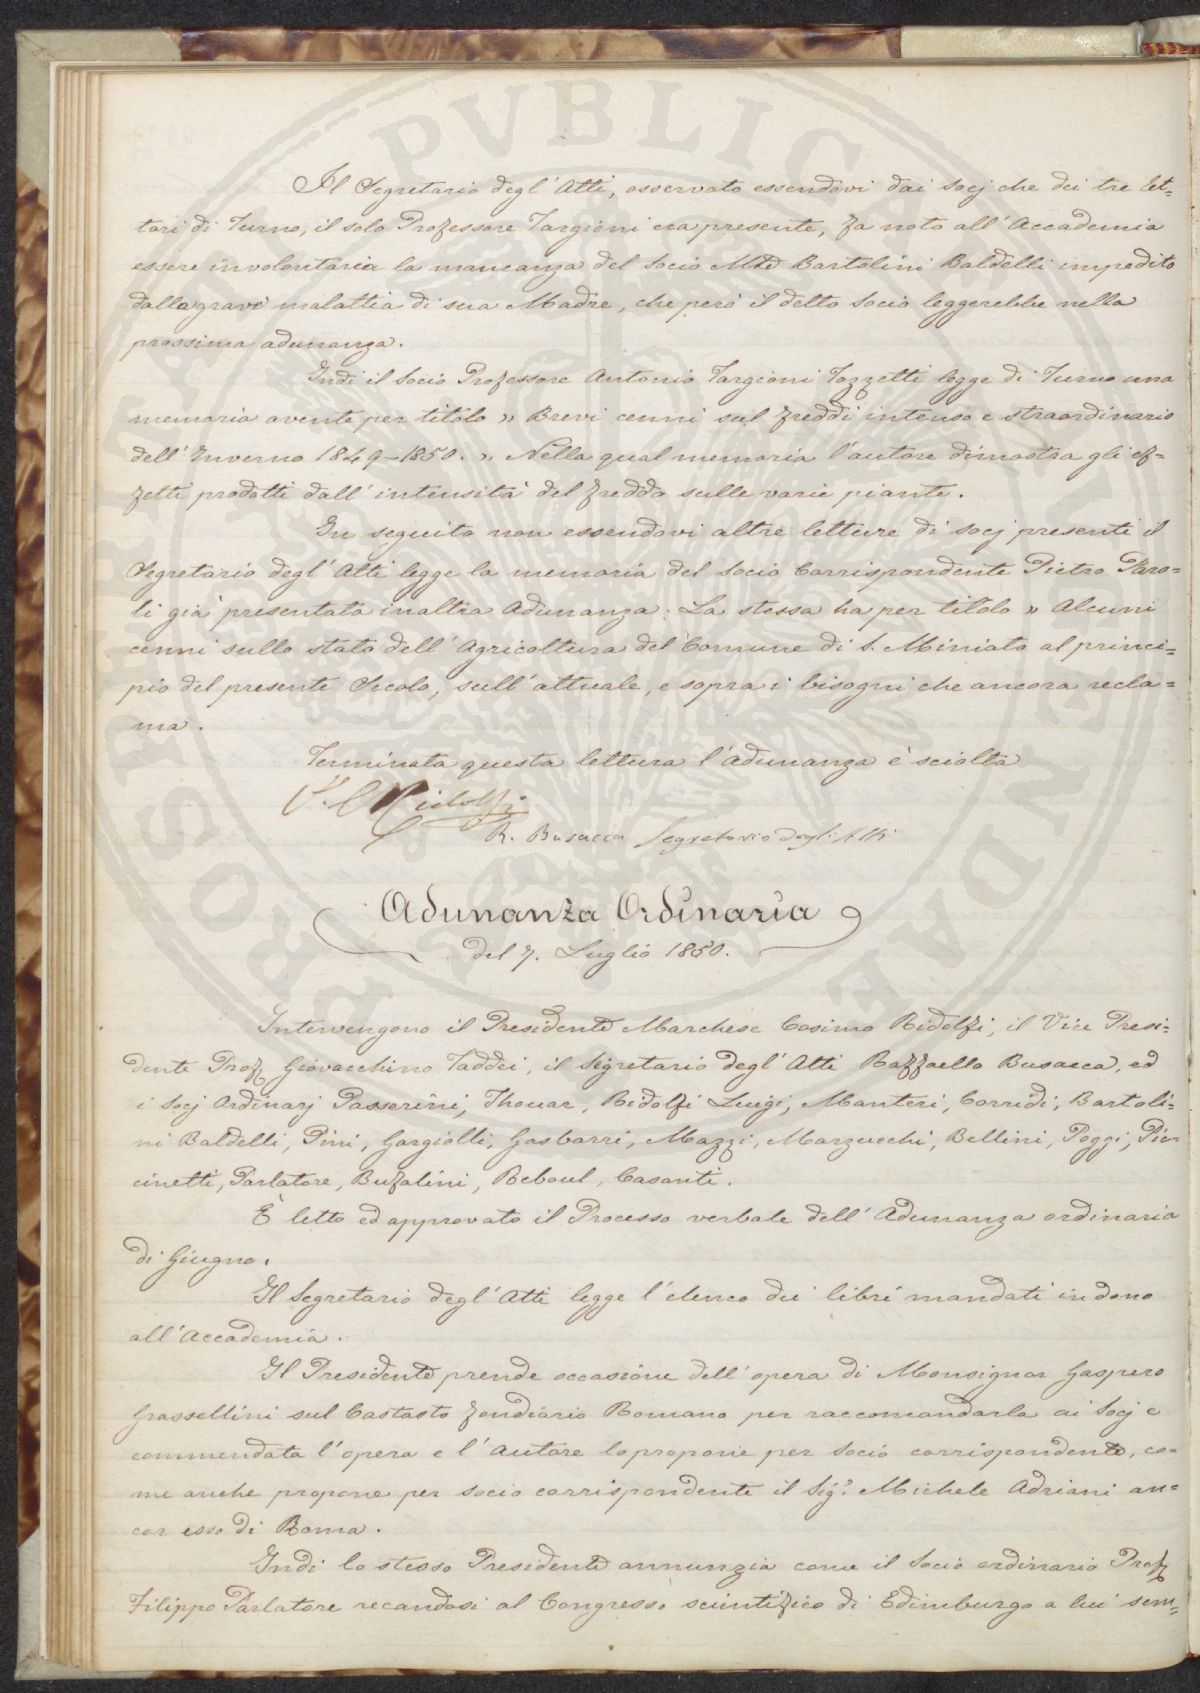 Il Segretario degl' Atti, osservato essendovi dai Socj che dei tre Let=
tori di Turno, il solo Professore Targioni era presente, fa noto all' Accademia
essere involontaria la mancanza del Socio Mse Bartolini Baldelli impedito
dalla grave malattia di sua Madre, che però il detto Socio leggerebbe nella
prossima adunanza.
Indi il Socio Professore Antonio Targioni Tozzetti legge di Turno una
memoria avente per titolo » Brevi cenni sul freddo intenso e straordinario
dell' Inverno 1849-1850. » Nella qual memoria l'autore dimostra gli ef=
fetti prodotti dall' intensità del freddo sulle varie piante.
In seguito non essendovi altre letture di Socj presenti il
Segretario degl' Atti legge la memoria del Socio Corrispondente Pietro Paro=
li già presentata in altra Adunanza: La stessa ha per titolo » Alcuni
cenni sullo stato dell' Agricoltura del Comune di S. Miniato al princi=
pio del presente Secolo, sull' attuale, e sopra i bisogni che ancora recla=
ma.
Terminata questa lettura l'adunanza è sciolta
Ridolfi
R. Busacca Segretario degli Atti
Adunanza Ordinaria
del 7. Luglio 1850.
Intervengono il Presidente Marchese Cosimo Ridolfi, il Vice Presi=
dente Prof. Giovacchino Taddei, il Segretario degl' Atti Raffaello Busacca, ed
i Socj Ordinarj Passerini, Thouar, Ridolfi Luigi, Manteri, Corridi, Bartoli=
ni Baldelli, Pini, Gargiolli, Gasbarri, Mazzi, Marzucchi, Bellini, Poggi, Pic=
cinetti, Parlatore, Bufalini, Reboul, Casanti.
È letto ed approvato il Processo verbale dell' Adunanza ordinaria
di Giugno.
Il Segretario degl' Atti legge l'elenco dei libri mandati in dono
all' Accademia.
Il Presidente prende occasione dell' opera di Monsignor Gaspero
Grassellini sul Castasto fondiario Romano per raccomandarla ai Socj e
commendata l'opera e l'Autore lo propone per Socio corrispondente, co=
me anche propone per socio corrispondente il Sigr. Michele Adriani an=
cor esso di Roma.
Indi lo stesso Presidente annunzia come il Socio ordinario Prof.
Filippo Parlatore recandosi al Congresso scientifico di Edimburgo a lui sem=
PVBLICA
PROSPERITATI
AVGENDAE